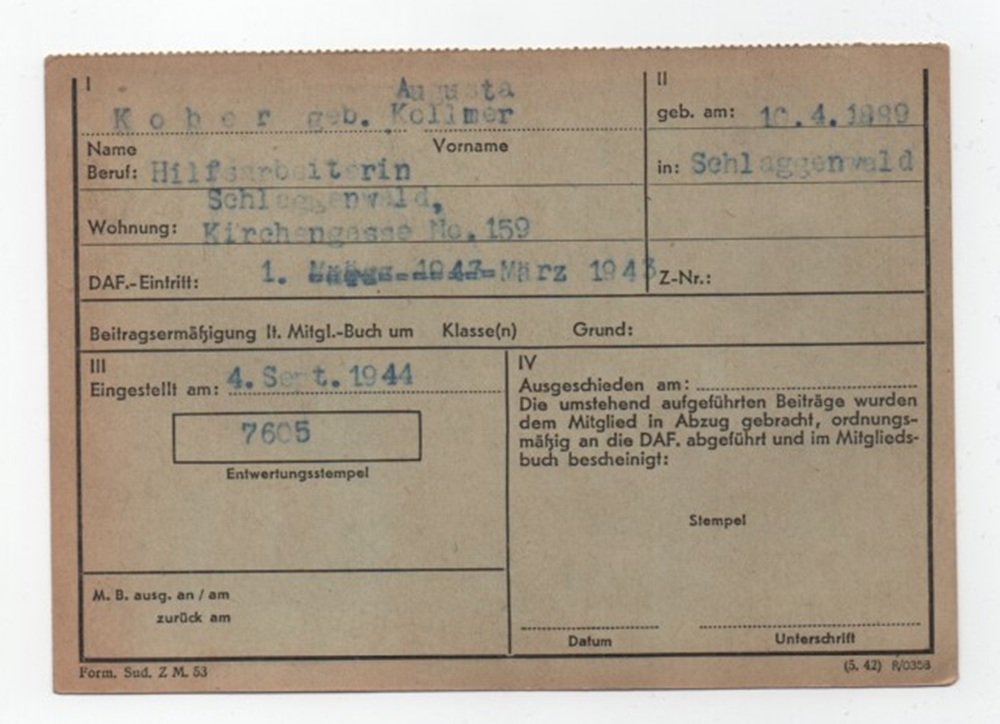 I
Augusta
Kober geb. Kollmer
Name Vorname
Beruf: Hilfsarbeiterin
Schlaggenwald,
Wohnung: Kirchengasse No.159
DAF.-Eintritt: 1. März 1943
II
geb. am: 10.4.1889
in: Schlaggenwald
Z-Nr.:
Beitragsermäßigung lt. Mitgl.-Buch um Klasse(n) Grund:
III
Eingestellt am: 4. Sept. 1944
7605
Entwertungsstempel
M. B. ausg. an / am
zurück am
IV
Ausgeschieden am:
Die umstehend aufgeführten Beiträge wurden
dem Mitglied in Abzug gebracht, ordnungs-
mäßig an die DAF. abgeführt und im Mitglieds-
buch bescheinigt:
Stempel
Datum Unterschrift
Form. Sud. Z M. 53
(5. 42) R/0358